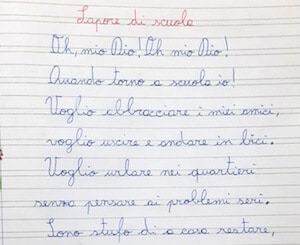 Sapore di scuola
Oh, mio Dio! Oh mio Dio!
Quando torno a scuola io!
Voglio abbracciare i miei amici,
voglio uscire e andare in bici.
Voglio urlare nei quartieri
senza pensare ai problemi seri.
Sono stufo di a casa restare,